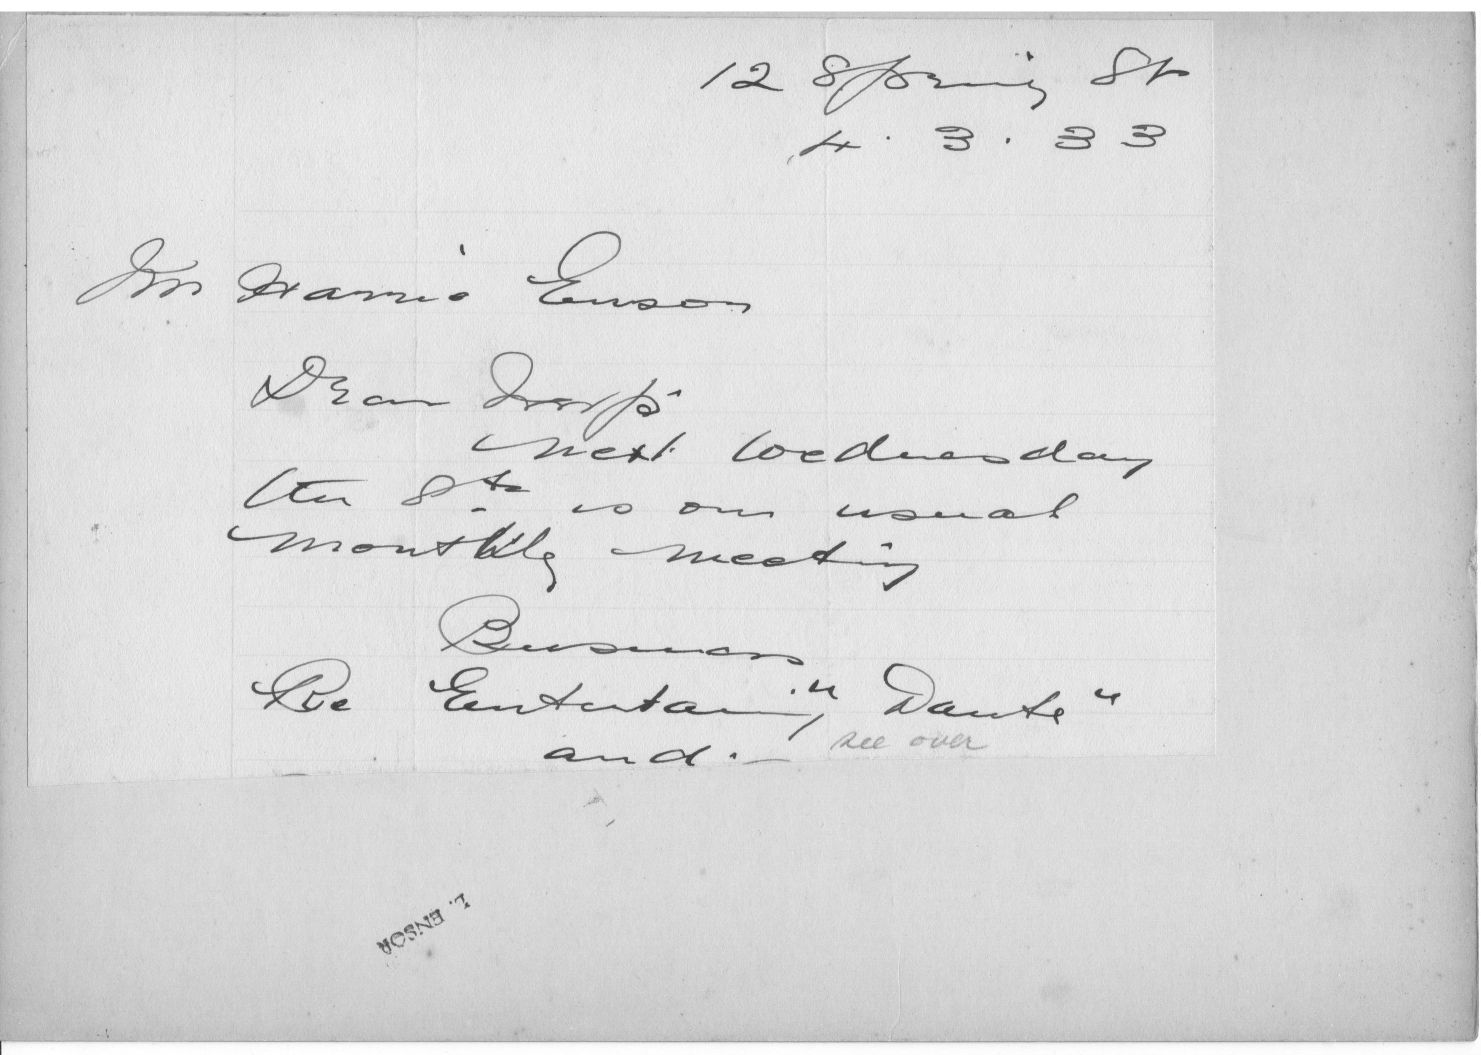 12 Spring St
4.3.33
Mr Harris Ensor
Dear
next Wednesday
the 8th is our usual
monthly meeting
Business
Re Entertaining "Dante"
and.—
see over
L. ENSOR